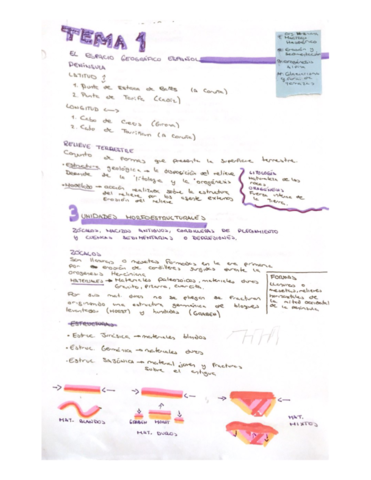 TEMA 1
EL ESPACIO GEOGRÁFICO ESPAÑOL
PENÍNSULA
LATITUD
1. Punta de Estaca de Bares (a Coruña)
2. Punta de Tarifa (Cádiz)
LONGITUD
1. Cabo de Creus (Girona)
2. Cabo de Touriñan (a Coruña)
RELIEVE TERRESTRE
Conjunto de formas que presenta la superficie terrestre.
Estructura geológica → la disposición del relieve
Depende de la litología y la orogénesis
Modelado → acción realizada sobre la estructura
del relieve por los agentes externos
Erosión del relieve
LITOLOGÍA
naturaleza de las
rocas
OROGÉNESIS
Fuerza interna de
la Tierra
3 UNIDADES MORFOESTRUCTURALES
ZÓCALOS, MACIZOS ANTIGUOS, CORDILLERAS DE PLEGAMIENTO
Y CUENCAS SEDIMENTARIAS O DEPRESIONES.
ZÓCALOS
Son llanuras o mesetas formadas en la era primaria
por erosión de cordilleras surgidas durante la
orogénesis Herciniana.
MATERIALES → Materiales paleozoicos, materiales duros
Granito, pizarra, cuarcita.
Por ser mat. duros no se pliegan se fracturan
originando una estructura germánica de bloques
levantados (HORST) y hundidos (GRABEN)
FORMAS
ESTRUCTURAS
• Estruc Jurásica → materiales blandos
• Estruc Germánica → materiales duros
• Estruc Sajónica → material joven y fracturas
Sobre el antiguo
MAT. BLANDOS
GRABEN HORST
MAT. DUROS
MAT.
MIXTOS